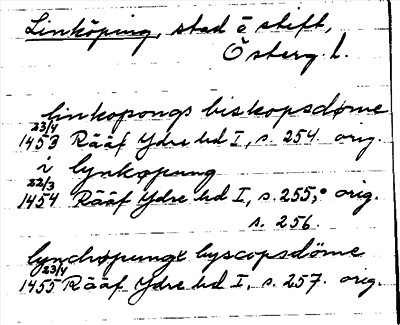 Linköping, stad o stift,
Österg. l.
linkopongs biskopsdøme
23/4
1453 Rääf Ydre hd I, s. 254. orig.
i lynkøpung
22/3
1454 Rääf Ydre hd I, s. 255, orig.
s. 256.
lynchøpungx byscopsdöme
23/4
1455 Rääf Ydre hd I, s. 257. orig.